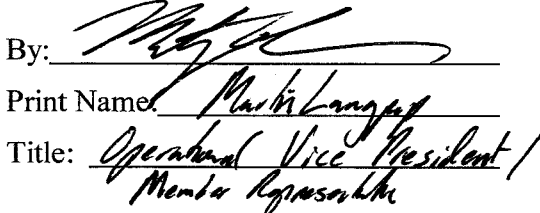 By:
Print Name: Martin
Title: Operational Vice President /
Member Representative